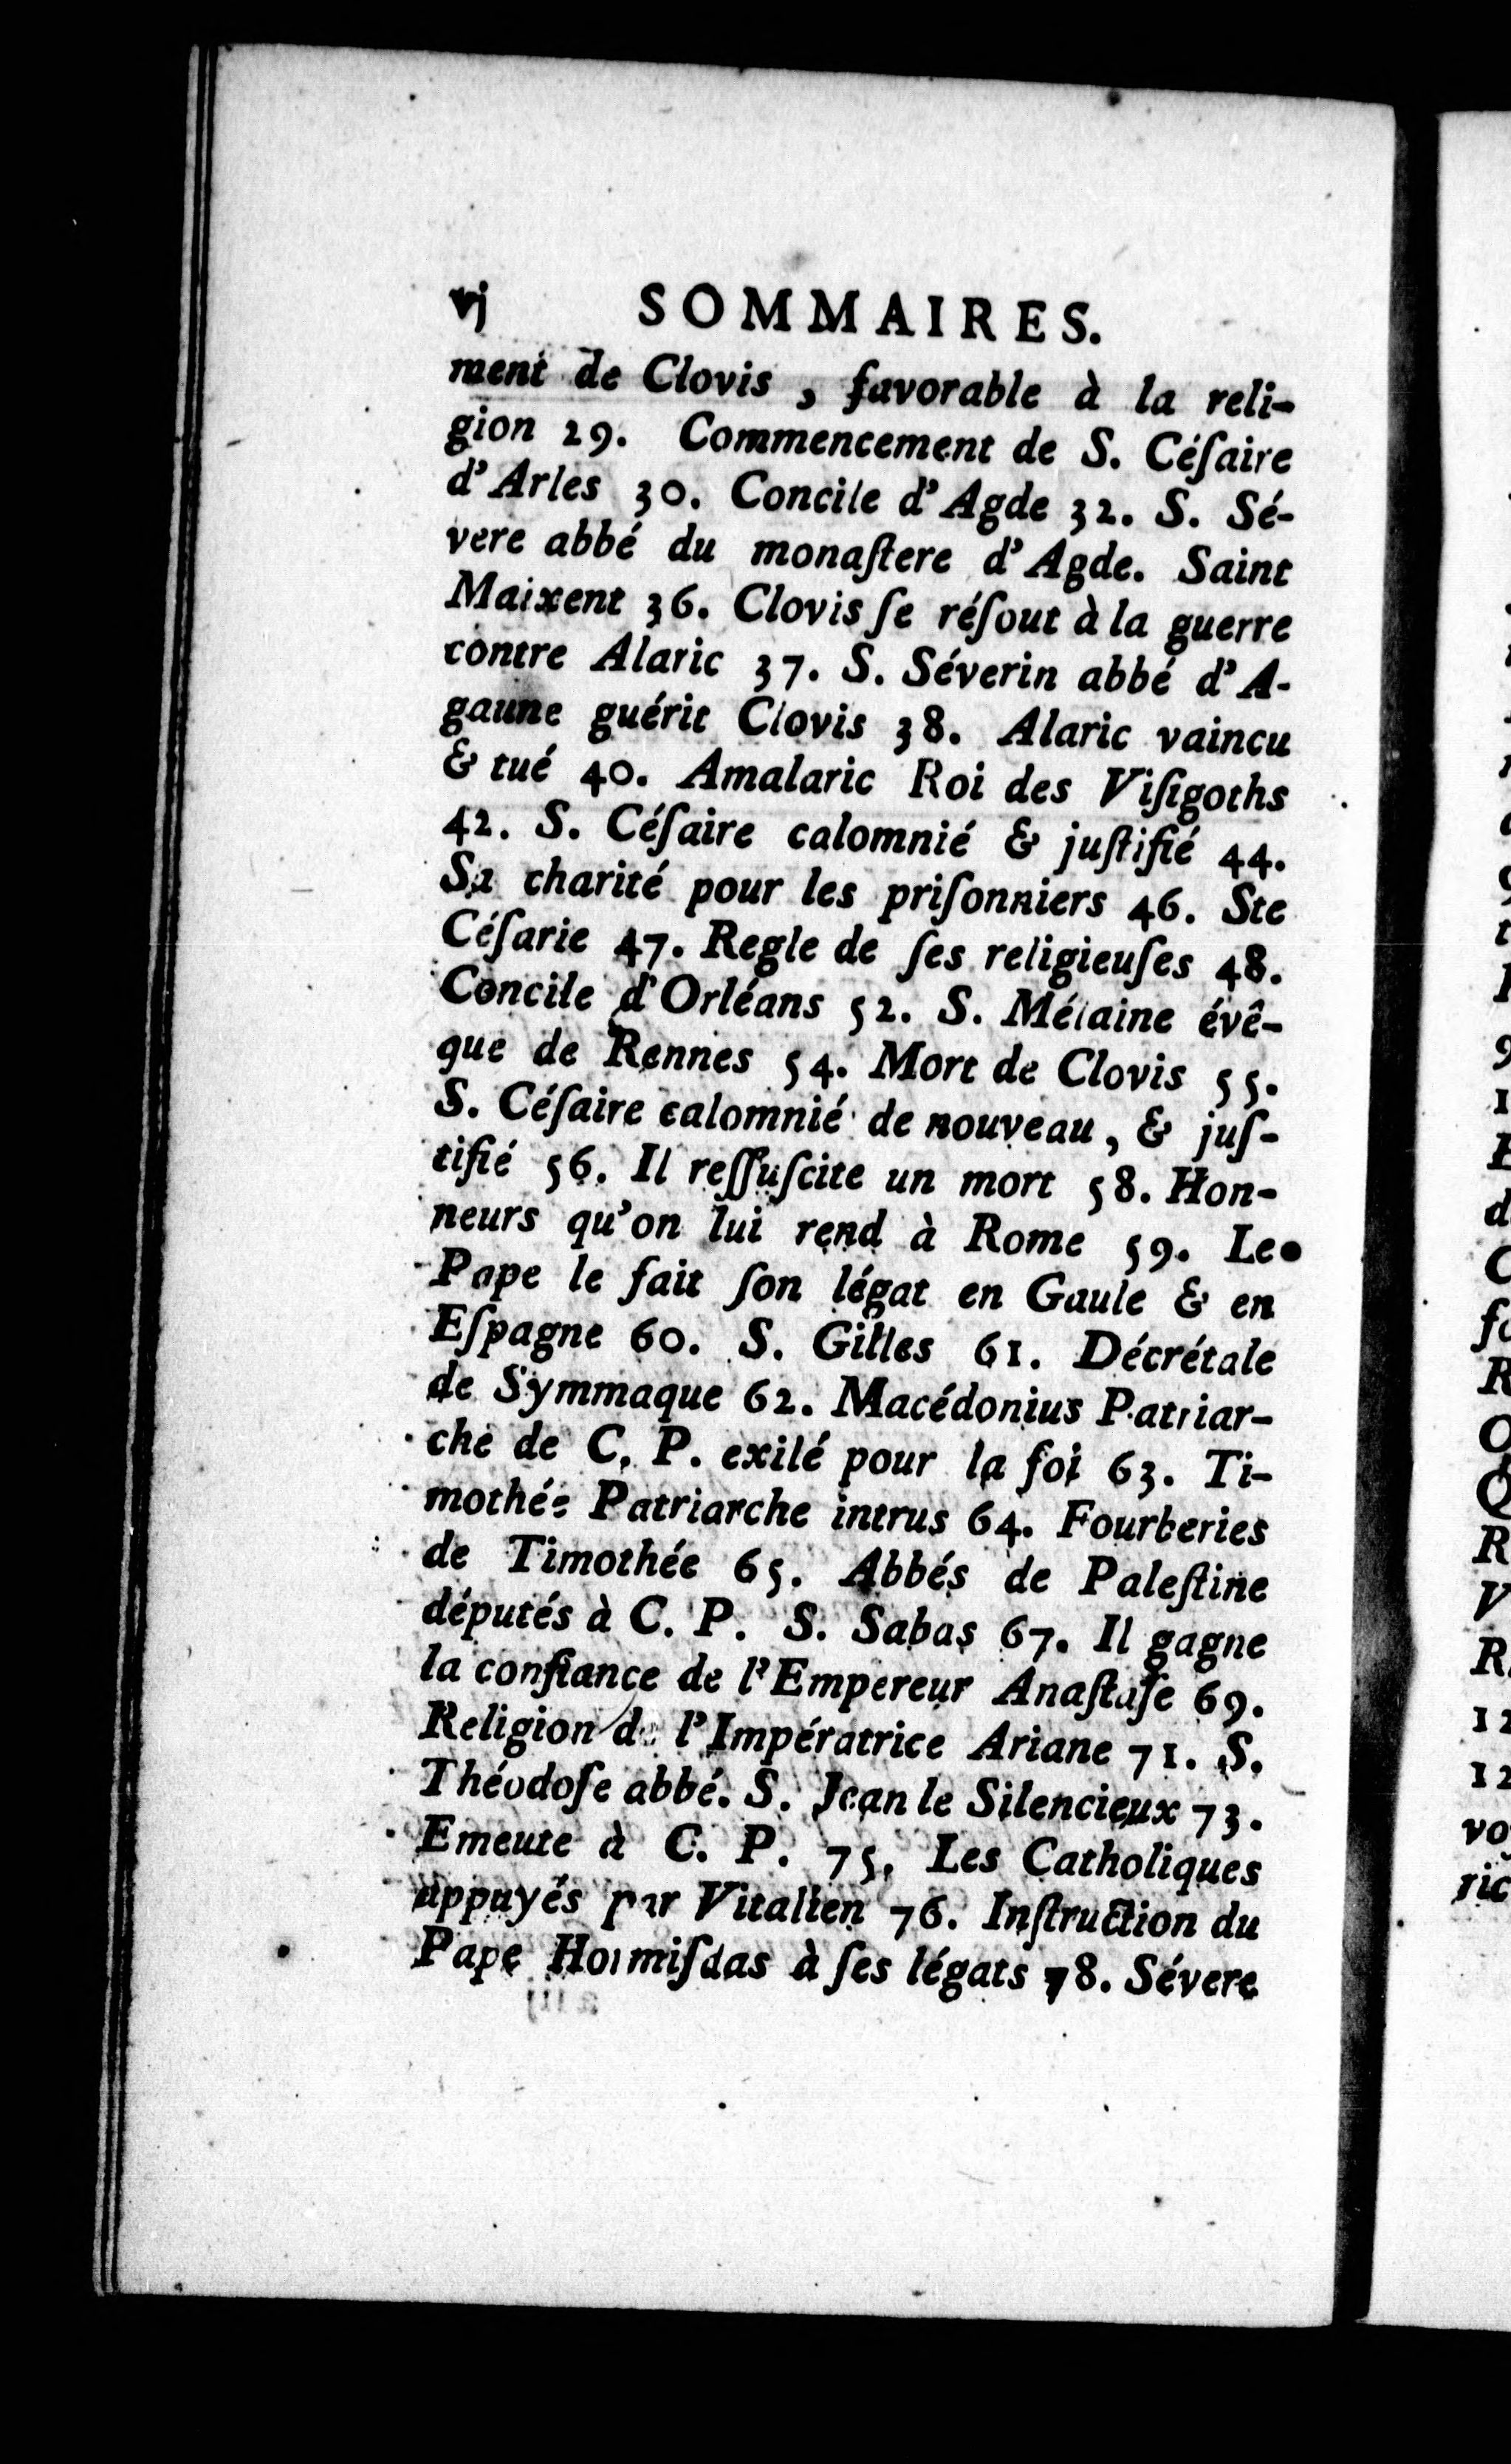 vj SOMMAIRES.
ment de Clovis, favorable à la reli-
gion 29. Commencement de S. Céſaire
d'Arles 30. Concile d'Agde 32. S. Sé-
vere abbé du monaſtere d'Agde. Saint
Maixent 36. Clovis ſe réſout à la guerre
contre Alaric 37. S. Séverin abbé d'A-
gaune guérit Clovis 38. Alaric vaincu
& tué 40. Amalaric Roi des Viſigoths
42. S. Céſaire calomnié & juſtifié 44.
Sa charité pour les priſonniers 46. Ste
Céſarie 47. Regle de ſes religieuſes 48.
Concile d'Orléans 52. S. Mélaine évê-
que de Rennes 54. Mort de Clovis 55.
S. Céſaire calomnié de nouveau, & juſ-
tifié 56. Il reſſuſcite un mort 58. Hon-
neurs qu'on lui rend à Rome 59. Le
Pape le fait ſon légat en Gaule & en
Eſpagne 60. S. Gilles 61. Décrétale
de Symmaque 62. Macédonius Patriar-
che de C. P. exilé pour la foi 63. Ti-
mothée Patriarche intrus 64. Fourberies
de Timothée 65. Abbés de Paleſtine
députés à C. P. S. Sabas 67. Il gagne
la confiance de l'Empereur Anaſtaſe 69.
Religion de l'Impératrice Ariane 71. S.
Théodoſe abbé. S. Jean le Silencieux 73.
Emeute à C. P. 75. Les Catholiques
appuyés par Vitalien 76. Inſtruction du
Pape Hormiſdas à ſes légats 78. Sévere